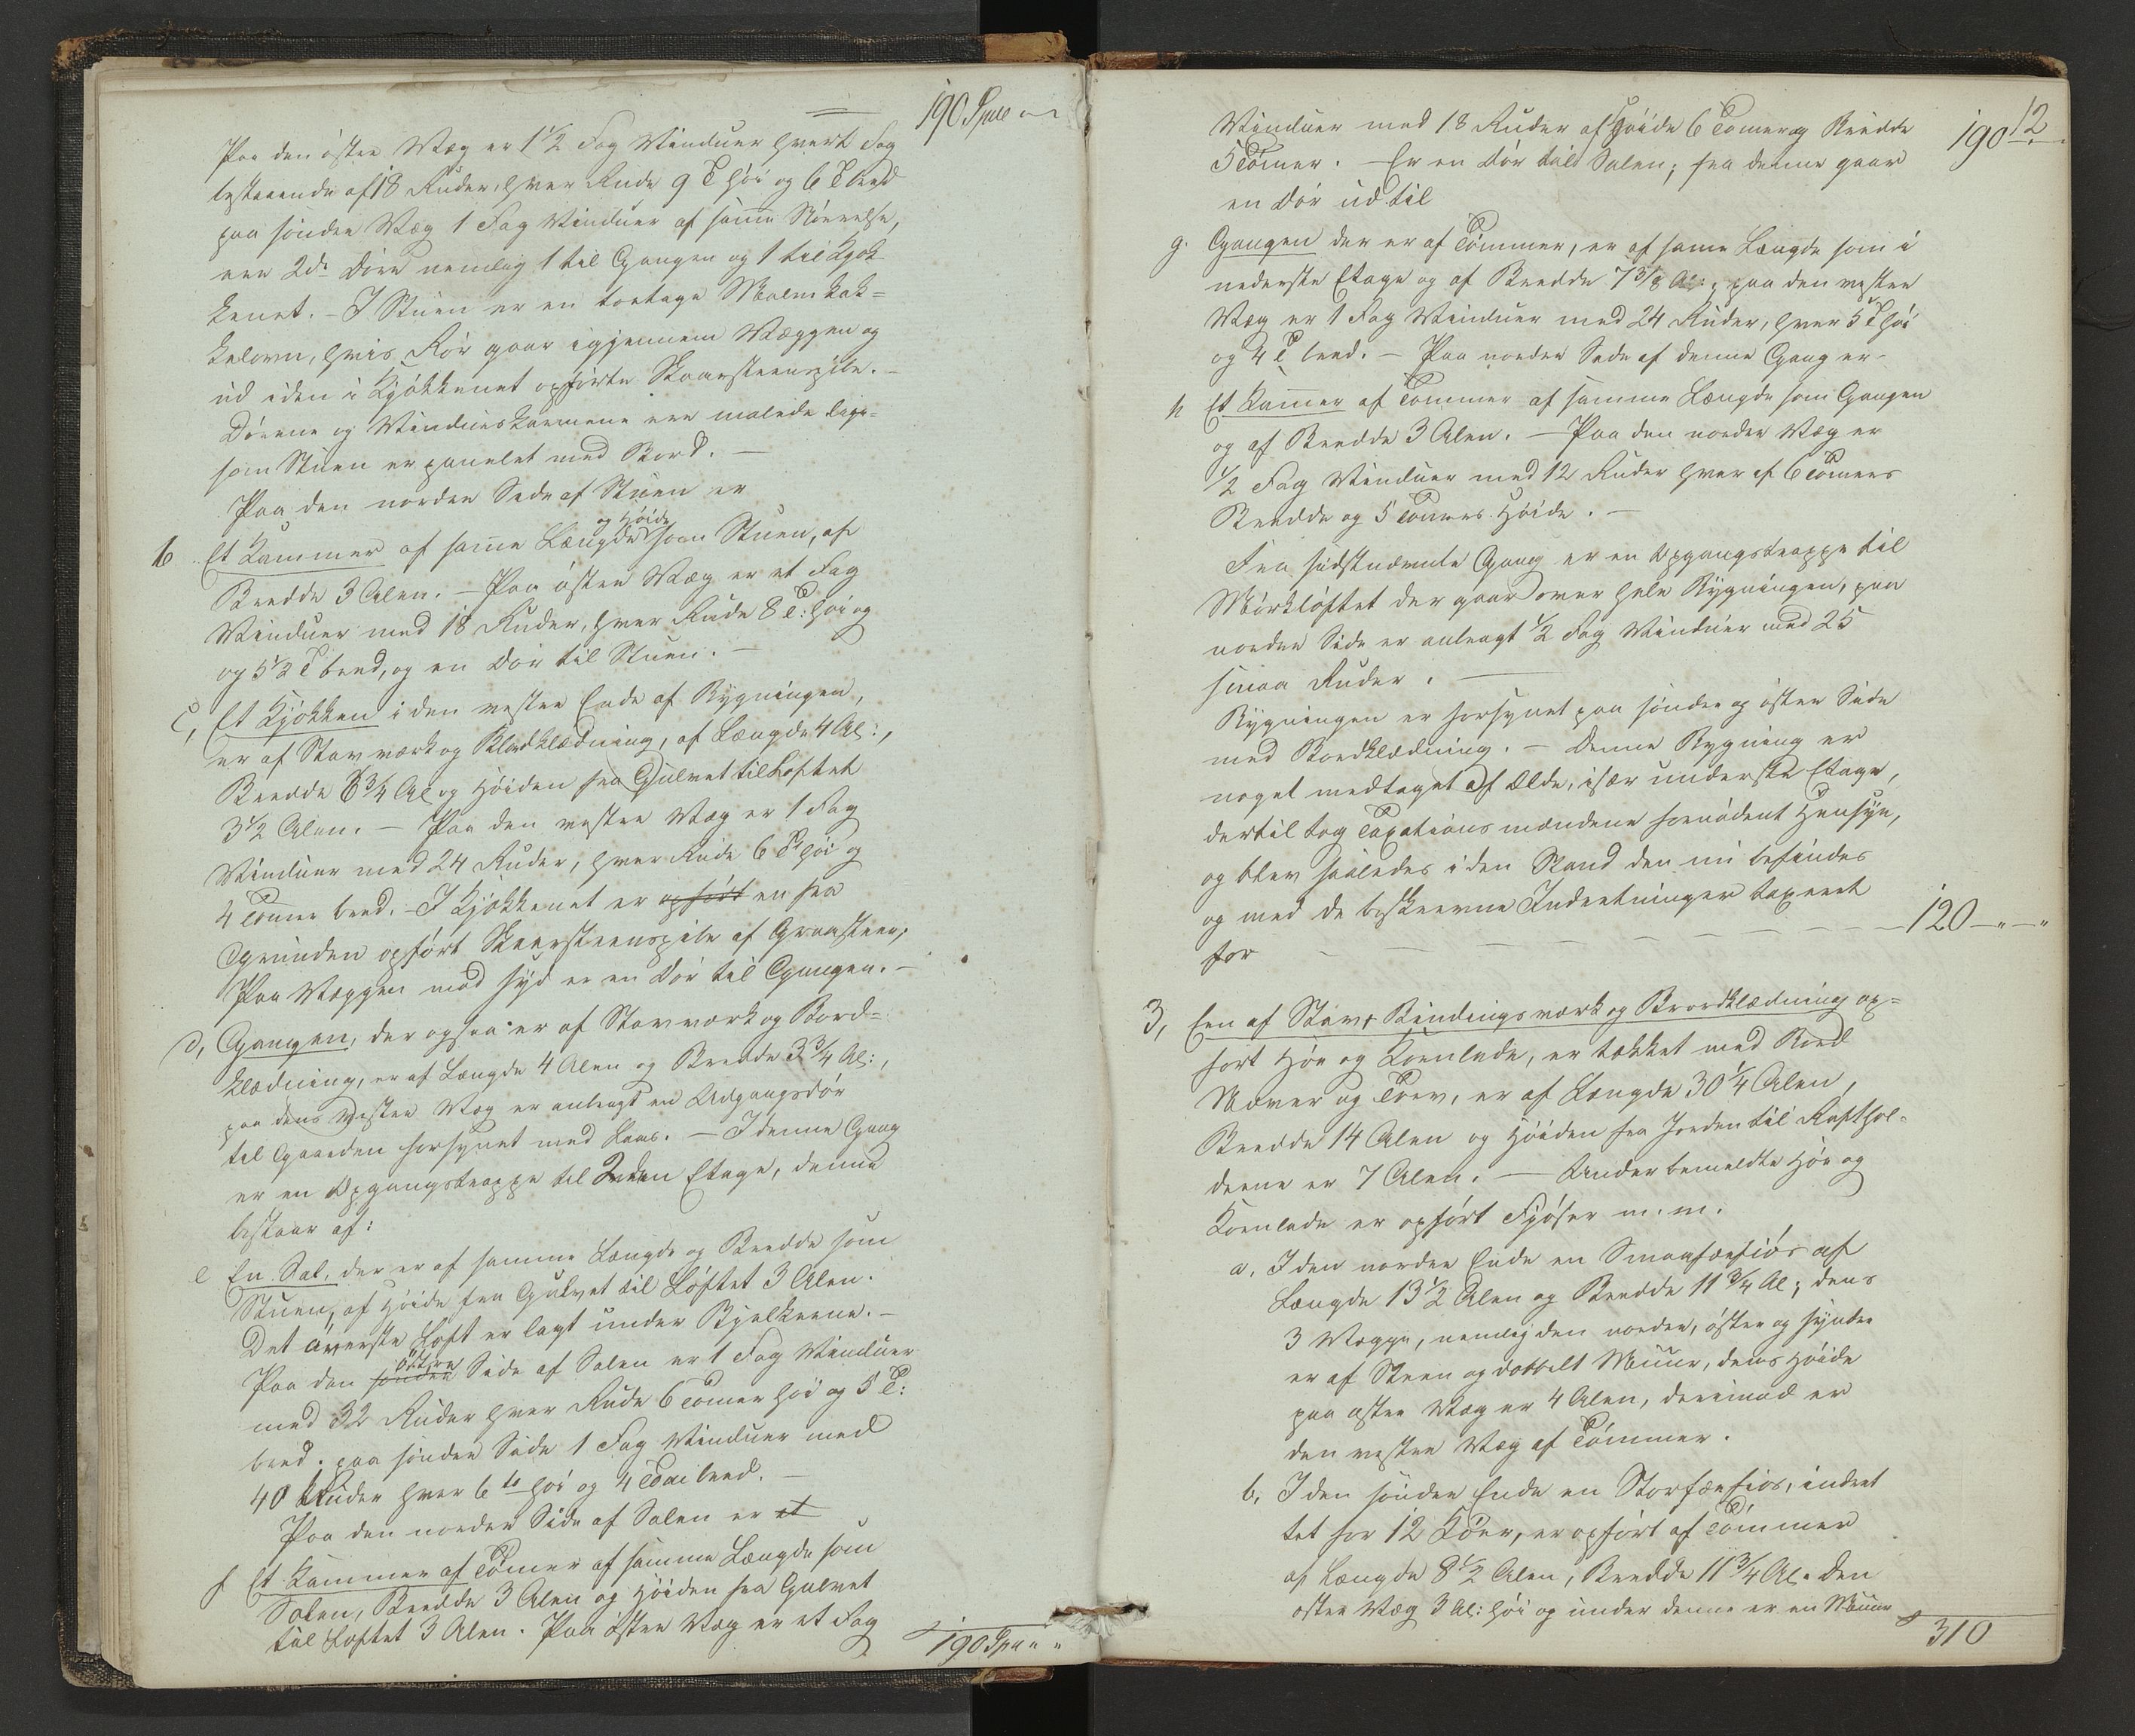 190 Spd " "
Paa den östre Væg er 1 1/2 Fag Vinduer hvert Fag
bestaaende af 18 Ruder, hver Rude 9 T höi og 6 T bred
paa söndre Væg 1 Fag Vinduer af samme Störrelse,
ere 2de Döre nemlig 1 til Gangen og 1 til Kjök
kenet. - I Stuen er en toetage Malm kak=
kelovn, hvis Rör gaar igjennem Væggen og
ud i den i Kjökkenet opförte Skorsteenspibe. -
Dörene og Vindueskarmene ere malede lige=
som Stuen er panelet med Bord. -
Paa den nordre Side af Stuen er
b Et Kammer af samme Længde og Höide som Stuen, af
Bredde 3 Alen. - Paa östre Væg er et Fag
Vinduer med 18 Ruder, hver Rude 8 T: höi og
og 5 1/2 T bred, og en Dör til Stuen. -
c, Et Kjökken i den vestre Ende af Bygningen,
er af Stavværk og Bordklædning, af Længde 4 Al:,
Bredde 6 3/4 Al og Höiden fra Gulvet til Loftet
3 1/2 Alen. - Paa den vestre Væg er 1 Fag
Vinduer med 24 Ruder, hver Rude 6 T höi og
4 Tommer bred. I Kjökkenet er opfört en fra
Grunden opfört Skorsteenspibe af Graasteen,
Paa Væggen mod Syd er en Dör til Gangen. -
d, Gangen, der ogsaa er af Stavværk og Bord=
klædning, er af Længde 4 Alen og Bredde 3 3/4 Al:,
paa dens vestre Væg er anbragt en Udgangsdör
til Gaarden forsynet med Laas. - I denne Gang
er en Opgangstrappe til 2den Etage, denne
bestaar af:
e En Sal, der er af samme Længde og Bredde som
Stuen, af Höide fra Gulvet til Löftet 3 Alen.
Det överste Loft er lagt under Bjelkerne. -
Paa den söndre östre Side af Salen er 1 Fag Vinduer
med 32 Ruder hver Rude 6 Tomer höi og 5 T:
bred. paa söndre Side 1 Fag Vinduer med
40 Ruder hver 6 to höi og 4 Tom bred. -
Paa den nordre Side af Salen er et
f Et Kammer af Tömer af samme Længde som
Salen, Bredde 3 Alen og Höiden fra Gulvet
til Loftet 3 Alen. Paa Östre Væg er et Fag
190 Spd " "
12
190 - " -
Vinduer med 18 Ruder af Höide 6 Tomer og Bredde
5 Tomer. - Er en Dör til Salen; fra denne gaar
en Dör ud til
g. Gangen der er af Tömmer, er af same Længde som i
nederste Etage og af Bredde 7 3/8 Al:, paa den vestre
Væg er 1 Fag Vinduer med 24 Ruder, hver 5 T höi
og 4 T bred. - Paa nordre Side af denne Gang er
h Et Kamer af Tömmer af samme Længde som Gangen
og af Bredde 3 Alen. - Paa den nordre Væg er
1/2 Fag Vinduer med 12 Ruder hver af 6 Tomers
Bredde og 5 Tommers Höide. -
Fra sidstnævnte Gang er en Opgangstrappe til
Mörkloftet der gaar over hele Bygningen, paa
nordre Side er anbragt 1/2 Fag Vinduer med 25
smaa Ruder. -
Bygningen er forsynet paa söndre og östre Side
med Bordklædning. - Denne Bygning er
noget medtaget af Ælde, især underste Etage,
dertil tog Taxationsmændene fornödent Hensyn,
og blev saaledes i den Stand den nu befindes
og med de beskrevne Indretninger taxeret
for - - - 120 - " - "
3, Een af Stav, Bindingsværk og Bordklædning op=
fört Höe og Kornlade, er tækket med Bord
Næver og Torv, er af Længde 30 1/4 Alen,
Bredde 14 Alen og Höiden fra Jorden til Rafthol-
derne er 7 Alen. - Under bemeldte Höe og
Kornlade er opfört Fjöser m. m.
a. I den nordre Ende en Smaafæfiös af
Længde 13 1/2 Alen og Bredde 11 3/4 Al; dens
3 Vægge, nemlig den nordre, östre og syndre
er af Steen og dobbelt Muur, dens Höide
paa östre Væg er 4 Alen, derimod er
den vestre Væg af Tömmer.
b, I den söndre Ende en Storfæfiös, indret
tet for 12 Köer, er opfört af Tömmer
af Længde 8 1/2 Alen, Bredde 11 3/4 Al. Den
östre Væg 3 Al: höi og under denne er en Muur
310